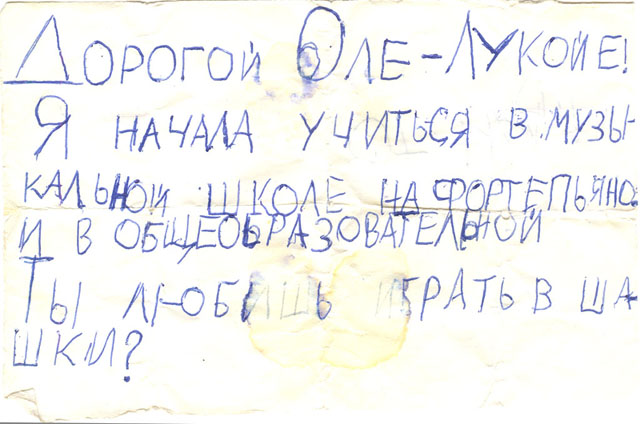 Дорогой Оле-Лукойе!
Я начала учиться в музы-
кальной школе на фортепьяно.
и в общеобразовательной
Ты любишь играть в ша
шки?